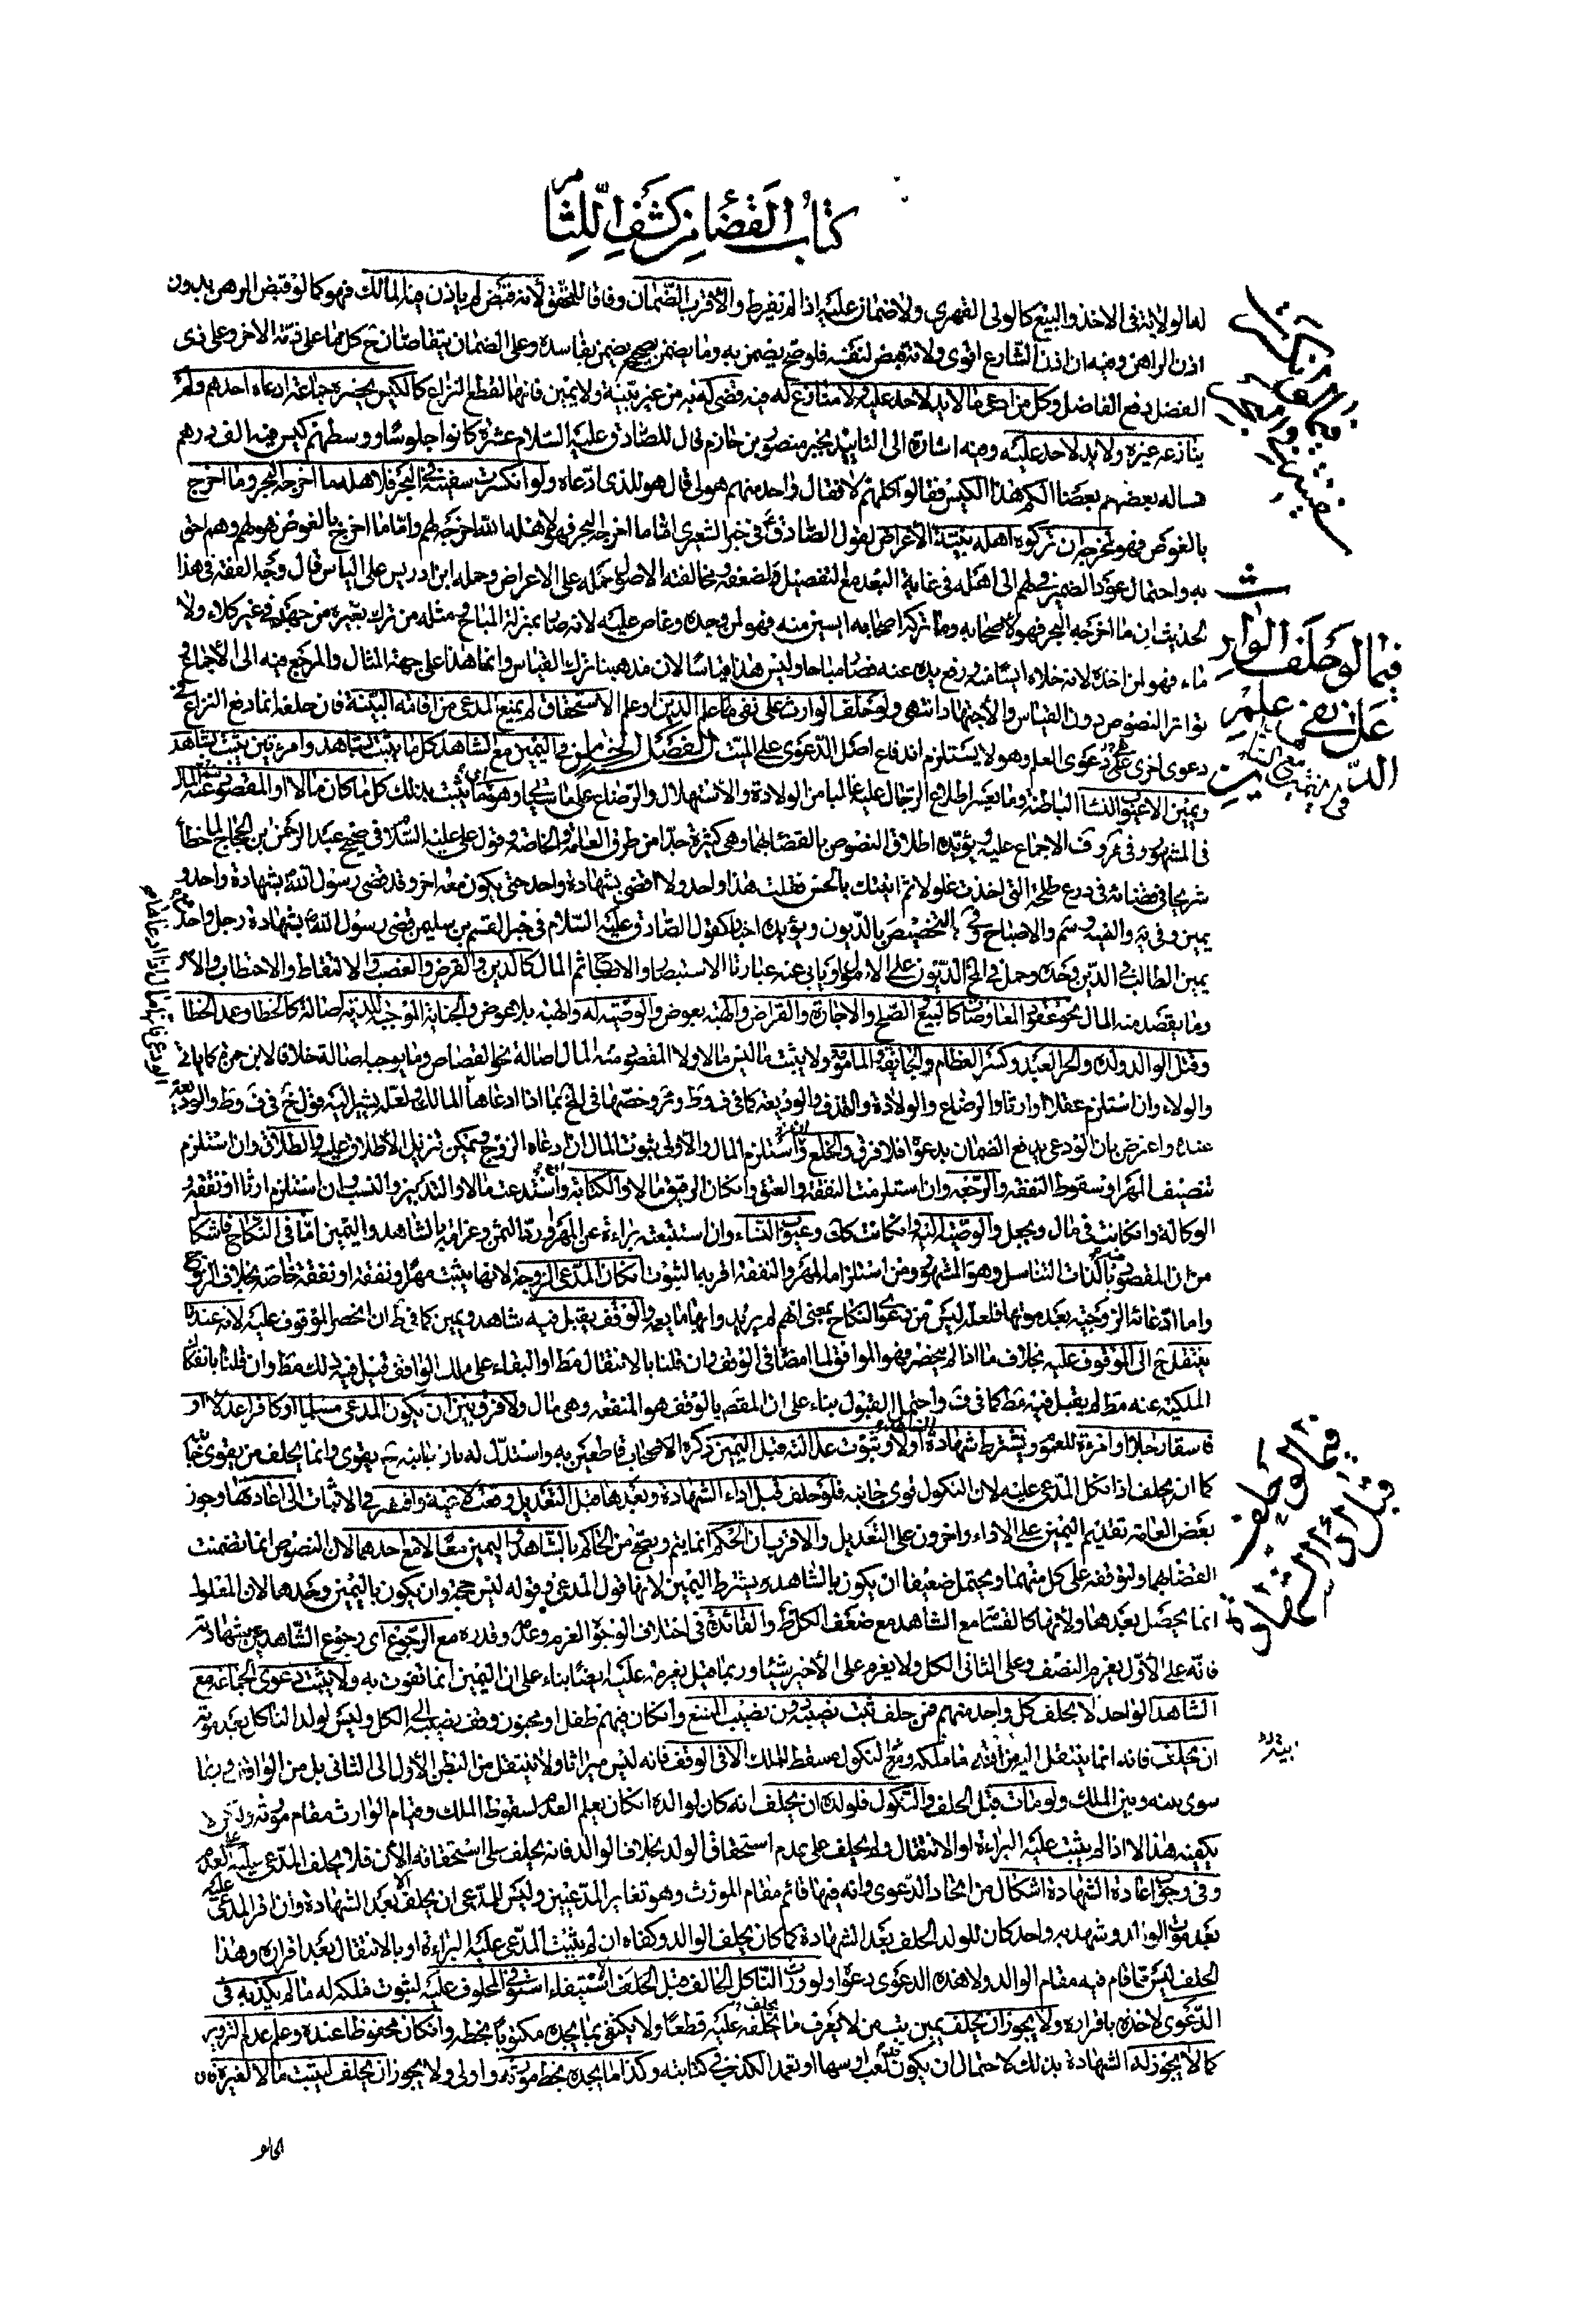 كتاب القضاء من كشف اللثام
له الولاية فى الاخذ والبيع كالولى القهرى ولا ضمان عليه اذا لم يفرط والأقرب الضمان وفاقا للمحقق لانه قبض لم ياذن فيه المالك فهو كما لو قبض الرهن بدون
اذن الراهن وفيه ان اذن الشارع اقوى ولانه قبض لنفسه فلو صح يضمن به وما يضمن بصحيحه يضمن بفاسده وعلى الضمان يتقاصان ح كل بما على ذمة الاخر وعلى ذى
الفضل دفع الفاضل وكل من ادعى ما لا يد لاحد عليه ولا منازع له فيه قضى له به من غير بينة ولا يمين فانها لقطع النزاع كالكيس بحضرة جماعة ادعاه احدهم ولم
ينازعه غيره ولا يد لاحد عليه وفيه اشارة الى التاييد بخبر منصور بن حازم قال للصادق عليه السلام عشرة كانوا جلوسا ووسطهم كيس فيه الف درهم
فساله بعضهم بعضا الكم هذا الكيس فقالوا كلهم لا فقال واحد منهم هو لى قال هو للذى ادعاه ولو انكسرت سفينة فى البحر فلاهله ما اخرجه البحر وما اخرج
بالغوص فهو لمخرجه ان تركوه اهله بنية الأعراض لقول الصادق ع فى خبر الشعيرى اما ما اخرجه البحر فهو لاهله الله اخرجه لهم واما ما اخرج بالغوص فهو لهم وهم احق
به واحتمال عود الضمير فى لهم الى اهله فى غاية البعد مع التفصيل ولضعفه ومخالفته الاصول حمله على الاعراض وحمله ابن ادريس على الياس قال وجه الفقه فى هذا
الحديث ان ما اخرجه البحر فهو لاصحابه وما تركه اصحابه ايسين منه فهو لمن وجده وغاص عليه لانه صار بمنزلة المباح ومثله من ترك بعيره من جهد فى غير كلاء ولا
ماء فهو لمن اخذه لانه خلاه ايسا منه ورفع يده عنه فصار مباحا وليس هذا قياسا لان مذهبنا ترك القياس وانما هذا على جهة المثال والمرجع فيه الى الاجماع و
تواتر النصوص دون القياس والأجتهاد انتهى ولو حلف الوارث على نفى ما علم الدين او علم الاستحقاق لم يمنع المدعى من اقامة البينة فان حلفه انما دفع النزاع فى
دعوى اخرى هى دعوى العلم وهو لا يستلزم اندفاع اصل الدعوى على الميت الفصل الخامس فى اليمين مع الشاهد كل ما يثبت بشاهد وامرءتين يثبت بشاهد
ويمين الا عيوب النساء الباطنة وما يعسر اطلاع الرجال عليه غالبا من الولادة والأستهلال والرضاع على ما سياتى وهو يثبت بذلك كل ما كان مالا او المقصود منه المال
فى المشهور وفى ف الاجماع عليه ويؤيده اطلاق النصوص بالقضاء بهما وهى كثيرة جدا من طرق العامة والخاصة وقول على عليه السلام فى صحيح عبد الرحمن بن الحجاج لما خطأ
شريحا فى قضائه فى درع طلحة التى اخذت غلولا ثم اتيتك بالحسن فقلت هذا واحد ولا اقضى بشهادة واحد حتى يكون معه اخر وقد قضى رسول الله بشهادة واحد و
يمين وفى يه والغنية والاصباح التخصيص بالديون ويؤيده اخبار كقول الصادق عليه السلام فى خبر القسم بن سليمن قضى رسول الله بشهادة رجل واحد مع
يمين الطالب فى الدين وحده وحمل فى الخ الديون على الاموال ويابى عنه عبارتا الاستبصار والاصباح ثم المال كالدين والقرض والغصب والالتقاط والاحتطاب والاسر
وما يقصد منه المال نحو عقود المعاوضات كالبيع والصلح والاجارة والقراض والهبة بعوض والوصية له والهبة بلا عوض والجناية الموجبة للدية اصالة كالخطا وعمد الخطا
وقتل الوالد ولده والحر العبد وكسر العظام والجايفة والمامومة ولا يثبت ما ليس مالا ولا المقصود منه المال اصالة نحو القصاص وما يوجبه اصالة خلافا لابن حمزة كما ياتى
والولاء وان استلزم عقلا او ارثا والرضاع والولادة والقذف والوديعة كما فى ف وط وئر وخصها فى الخ بما اذا ادعاها المالك ولعله يشير اليه قول خ فى ف وط والوديعة
عنده واعترض بان الودعى يدفع الضمان بدعوى فلا فرق والخلع وان استلزم المال والأولى ثبوت المال ان ادعاه الزوج ويمكن تنزيل الأطلاق عليه والطلاق وان استلزم
تنصيف المهر او سقوط النفقة والرجعة وان استلزمت النفقة والعتق وان كان الرقيق مالا والكتابة وان استدعت مالا والتدبير والنسب وان استلزم ارثا او نفقة و
الوكالة وان كانت فى مال وبجعل والوصية اليه وان كانت كك وعيوب النساء وان استتبعت براءة عن المهر ورد الثمن وغرامة بالشاهد واليمين اما فى النكاح فاشكال
من ان المقصود بالذات التناسل وهو المشهور ومن استلزامه المهر والنفقة اقربه الثبوت ان كان المدعى الزوجة لانها يثبت مهرا ونفقة او نفقة خاصة بخلاف الزوج
واما ادعائه الزوجية بعد موتها فلعله ليس من دعوى النكاح بمعنى انهم لم يريدوا بها ما يعمه والوقف يقبل فيه شاهد ويمين كما فى ط ان انحصر الموقوف عليه لانه عندنا
ينتقل ح الى الموقوف عليه بخلاف ما اذا لم ينحصر وهو الموافق لما امضا فى الوقف وان قلنا بالانتقال مط او البقاء على ملك الواقف قبل فيه ذلك مط وان قلنا بانفكاك
الملكية عنه مط لم يقبل فيه مط كما فى ف واحتمال القبول بناء على ان المقصد بالوقف هو المنفعة وهى مال ولا فرق بين ان يكون المدعى مسلما او كافرا عدلا او
فاسقا رجلا او امرءة للعموم ويشترط شهادة الشاهد اولا وثبوت عدالته قبل اليمين ذكره الاصحاب قاطعين به واستدل له بان جانبه ح يقوى وانما يحلف من يقوى جانبه
كما انه يحلف اذا نكل المدعى عليه لان النكول قوى جانبه فلو حلف قبل اداء الشهادة وبعدها قبل التعديل وقعت لاغية وافتقر فى الاثبات الى اعادتها وجوز
بعض العامة تقديم اليمين على الاداء واخرون على التعديل والاقرب ان الحكم انما يتم ويصح من الحاكم بالشاهد واليمين معا لا مع احدهما لان النصوص انما تضمنت
القضاء بهما ولتوقفه على كل منهما ويحتمل ضعيفا ان يكون بالشاهد ويشترط اليمين لانها قول المدعى وقوله ليس حجة وان يكون باليمين وحدها لان المقلوط
انما يحصل بعدها ولأنها كالقسامة مع الشاهد مع ضعف الكل ظ والفائدة فى اختلاف الوجوه الغرم وعدمه وقدره مع الرجوع اى رجوع الشاهد عن شهادته
فانه على الأول يغرم النصف وعلى الثانى الكل ولا يغرم على الأخير شيئا وربما قيل بغرمه عليه ايضا بناء على ان اليمين انما تقوت به ولا يثبت دعوى الجماعة مع
الشاهد الواحد الا بحلف كل واحد منهم فمن حلف ثبت نصيبه دون نصيب الممتنع وان كان فيهم طفل او مجنون وقف نصيبه الى الكمال وليس لولد الناكل بعد موته
ان يحلف فانه انما ينتقل اليه من ابيه فاملكه ومع النكول سقط الملك الا فى الوقف فانه ليس ميراثا ولا ينتقل من البطن الأول الى الثانى بل من الواقف وربما
سوى بينه وبين الملك ولو مات قبل الحلف والنكول فلولده ان يحلف انه كان لوالده ان كان يعلم العدم لسقوط الملك وقيام الوارث مقام مورثه ولكن
يكفيه هذا الا اذا لم يثبت عليه البراءة او الانتقال ولم يحلف على عدم استحقاق الولد بخلاف الوالد فانه يحلف على استحقاقه الأن فلا يحلف المدعى عليه على العدم
وفى وجوب اعادة الشهادة اشكال من اتحاد الدعوى وانه فيها قائم مقام المورث وهو تغاير المدعيين وليس للمدعى ان يحلف الا بعد الشهادة وان اقر المدعى عليه
بعد موت الوالد وشهد به واحد كان للولد الحلف بعد الشهادة كما كان يحلف الوالد وكفاه ان لم يثبت المدعى عليه البراءة او بالانتقال بعد اقراره وهذا
الحلف ليس مما قام فيه مقام الوالد ولا هذه الدعوى دعوى اولو ورث الناكل الحالف قبل الحلف الاستيفاء استوفى المحلوف عليه لثبوت فلكه له ما لم يكذبه فى
الدعوى لاخذه باقراره ولا يجوز ان يحلف يمين يثبت من لا يعرف ما يحلف عليه قطعا ولا يكتفى بما يجده مكتوبا بخطه وان كان محفوظا عنده وعلم عدم التزوير
كما لا يجوز له الشهادة بذلك لاحتمال ان يكون لعب او سها او تعمد الكذب فى كتابته وكذا ما يجده بخط مورثه واولى ولا يجوز ان يحلف ليثبت مالا لغيره
فيما لو انكسرت سفينة
فيما لو حلف الوارث
على نفى علم
الدين
فيما لو حلف
قبل اداء الشهادة